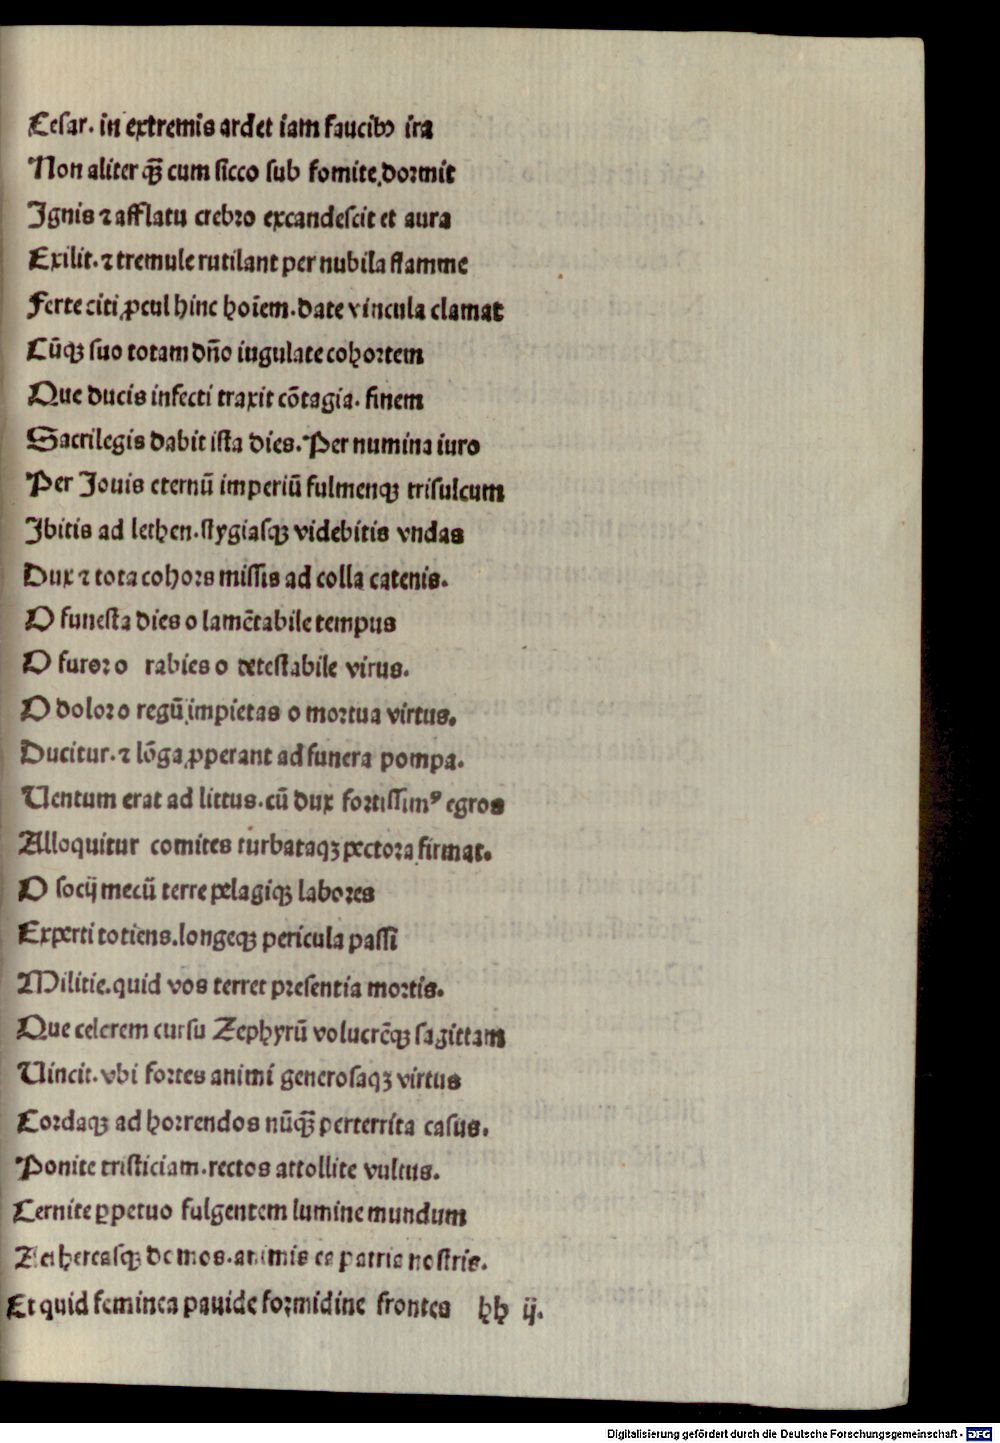 Cesar. in extremis ardet iam faucibꝰ ira
Non aliter qꝫ̃ cum sicco sub fomite dormit
Ignis ⁊ afflatu crebro excandescit et aura
Exilit. ⁊ tremule rutilant per nubila flamme
Ferte citi ꝓcul hinc hoīem. date vincula clamat
Cũqꝫ suo totam dño iugulate cohortem
Que ducis infecti traxit cõtagia. finem
Sacrilegis dabit ista dies. Per numina iuro
Per Jouis eternũ imperiũ fulmenqꝫ trisulcum
Ibitis ad lethen. stygiasqꝫ videbitis vndas
Dux ⁊ tota cohors missis ad colla catenis.
O funesta dies o lamẽtabile tempus
O furor o rabies o detestabile virus.
O dolor o regũ impietas o mortua virtus.
Ducitur. ⁊ lõga ꝓperant ad funera pompa.
Uentum erat ad littus. cũ dux fortissimꝰ egros
Alloquitur comites turbataqꝫ pectora firmat.
O socij mecũ terre pelagiqꝫ labores
Experti totiens. longeqꝫ pericula passi
Militie. quid vos terret presentia mortis.
Que celerem cursu Zephyrũ volucrẽqꝫ sagittam
Uincit. vbi fortes animi generosaqꝫ virtus
Cordaqꝫ ad horrendos nũqꝫ̃ perterrita casus.
Ponite tristiciam. rectos attollite vultus.
Cernite ꝑpetuo fulgentem lumine mundum
Aethereasqꝫ domos. animis ea patria nostris.
Et quid feminea pauide formidine frontes hh ij.
Digitalisierung gefördert durch die Deutsche Forschungsgemeinschaft - DFG